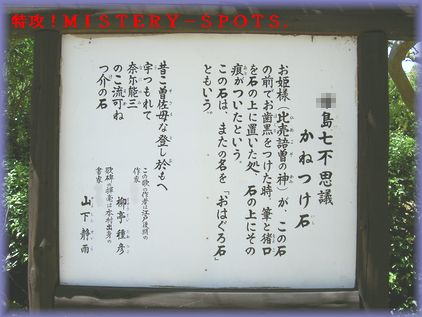 特攻！MISTERY-SPOTS.
島七不思議
かねつけ石
お姫様（比売語曽の神）が、この石
の前でお歯黒をつけた時、筆と猪口
を石の上に置いた処、石の上にその
痕がついたという。
この石は、またの名を「おはぐろ石」
ともいう。
昔こ曽佐毋な登し於もへ
宇つもれて
奈尓能三
のこ流可ね
つ介の石
この歌の作者は江戸後期の
作家
柳亭種彦
歌碑の揮毫は木村出身の
書家
山下静雨